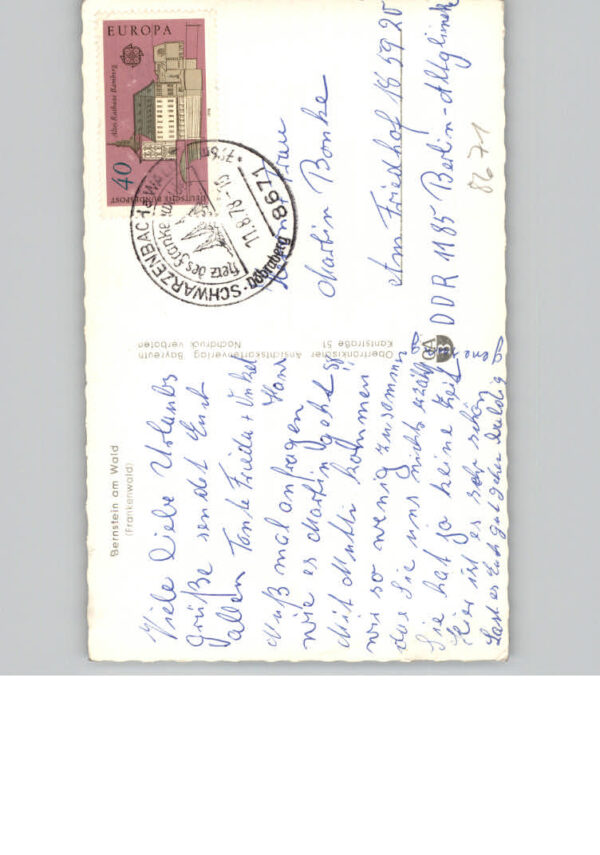 Bernstein am Wald
(Frankenwald)
Viele liebe Urlaubs
Grüße sendet Euch
allen Tante Frieda + Onkel
Hans
Muß mal anfragen
wie es Martin geht
Mit Mutti kommen
wir so wenig zusammen
das Sie uns nichts erzählt
Sie hat ja keine Zeit
Hier ist es sehr schön
Last es Euch gut gehen
Oberfränkischer Ansichtskartenverlag Bayreuth
Kantstraße 51
Nachdruck verboten
EUROPA
Altes Rathaus Bamberg
40
DEUTSCHE BUNDESPOST
SCHWARZENBACH a WALD
Herz des Frankenwaldes
Döbraberg
11.8.78
8671
Frau
Martin Bonke
Am Friedhof 18 59 20
DDR 1185 Berlin-Altglienicke
8671